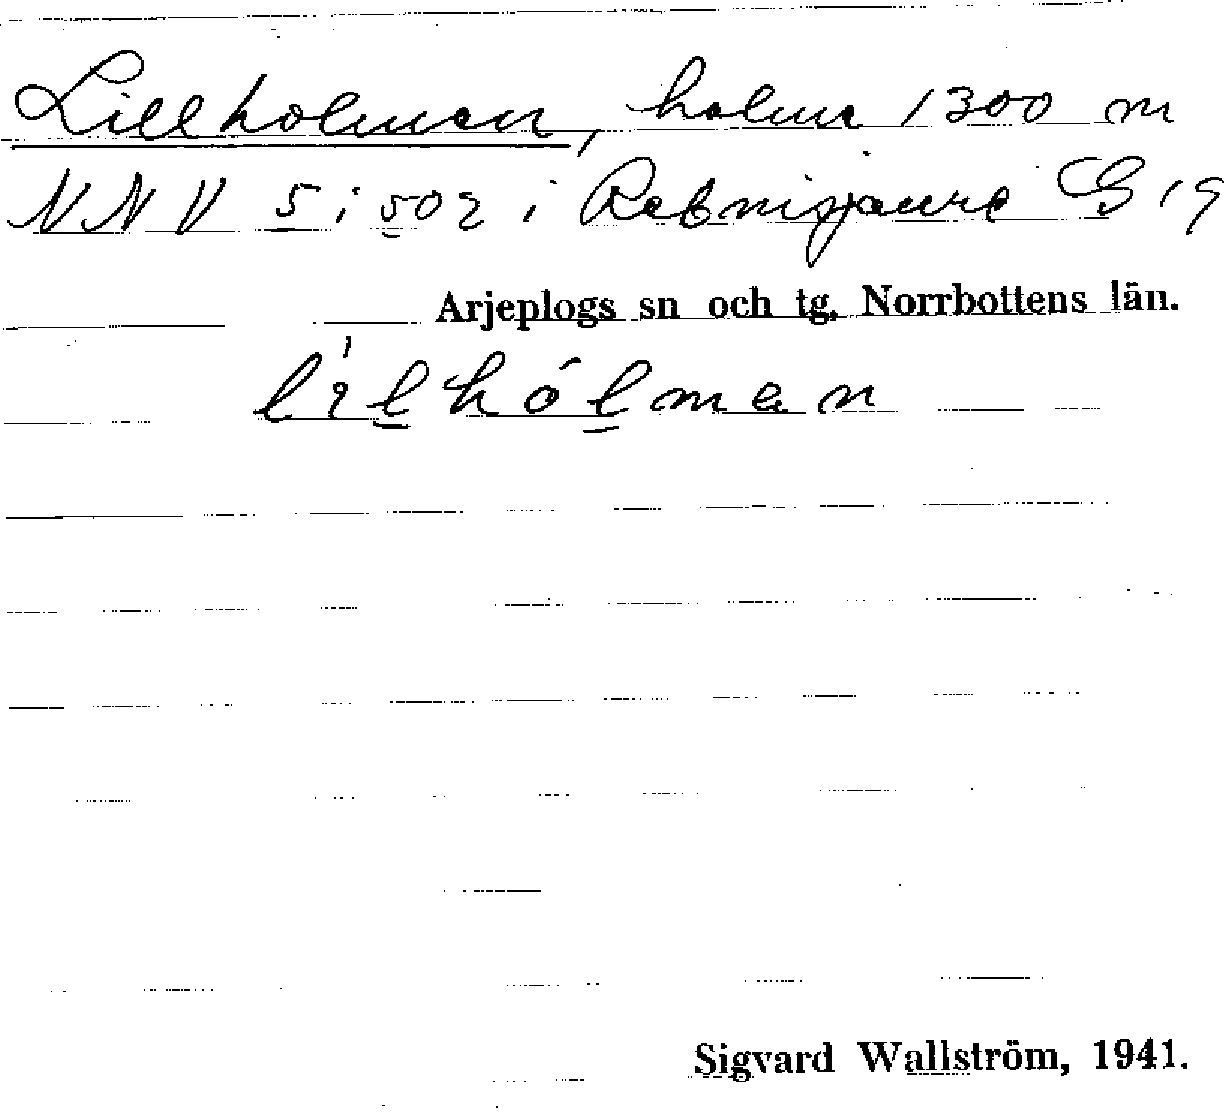 Lillholmen, holme 1300 m
NNV 5 i 502 i Rebnisjaure G 19
Arjeplogs sn och tg. Norrbottens län.
lilhólman
Sigvard Wallström, 1941.